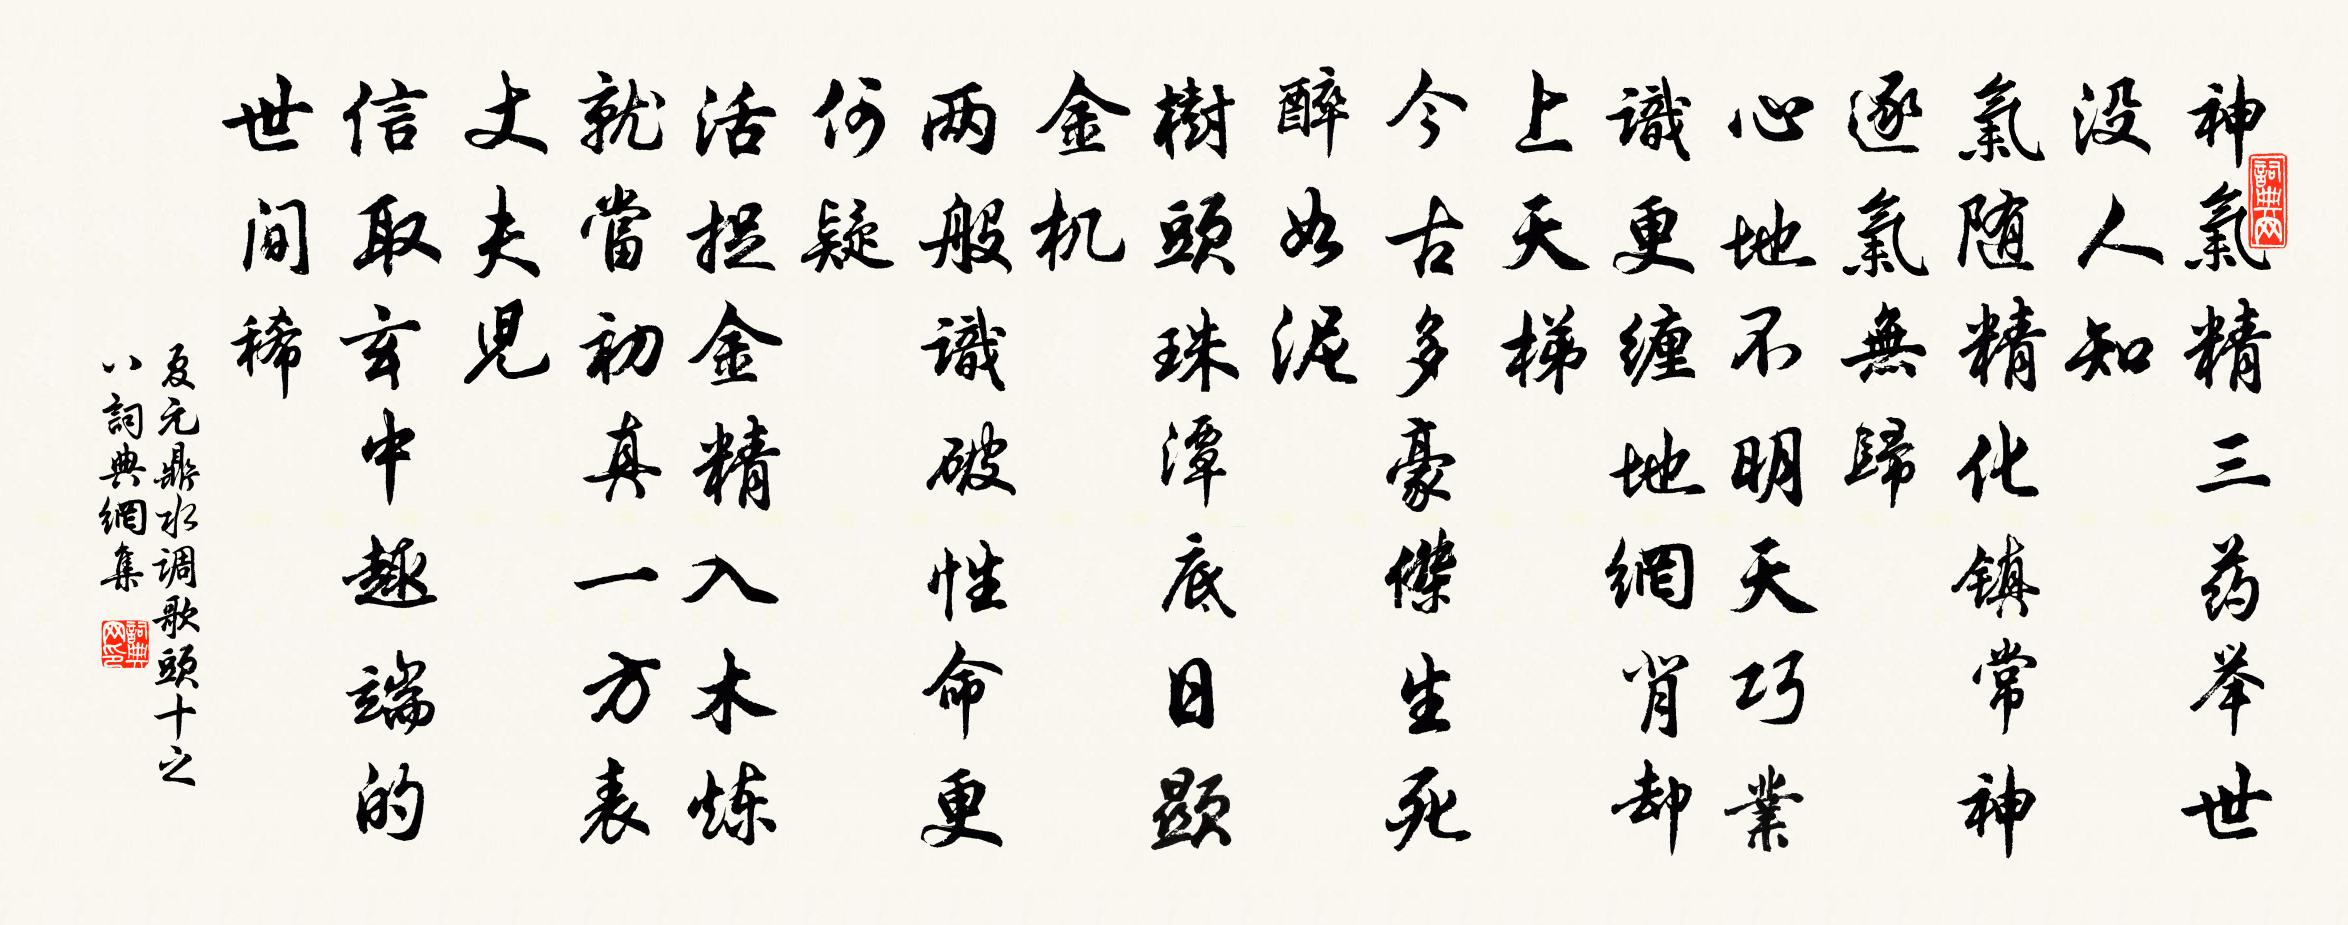 神氣精三药举世
没人知
氣随精化镇常神
逐氣無歸
心地不明天巧業
識更缠地網肖却
上天梯
今古多豪傑生死
醉如泥
樹頭珠潭底日顕
金机
两般識破性命更
何疑
活捉金精入木炼
就當初真一方表
丈夫児
信取玄中趣端的
世间稀
夏元鼎水调歌頭十之
八詞典網集
詞典网
詞典网印